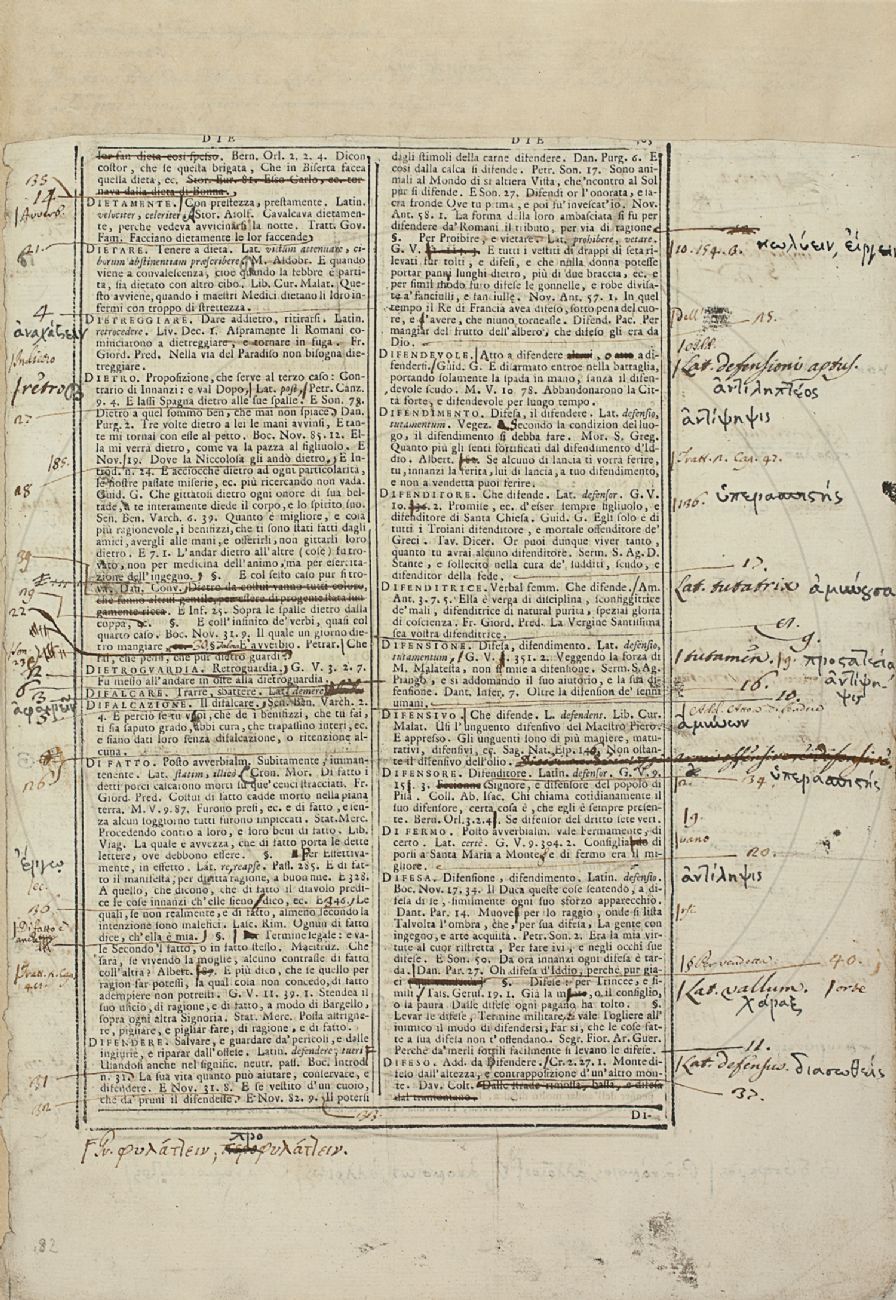 DIE
DIE
lor fan dieta così spesso. Bern. Orl. 2. 2. 4. Dicon
costor, che se questa brigata, Che in Biserta facea
questa dieta, ec.
nava dalla dieta di Bonna.
DIETAMENTE. Con prestezza, prestamente. Latin.
velociter, celeriter. Stor. Aiolf. Cavalcava dietamen-
te, perchè vedeva avvicinarsi la notte. Tratt. Gov.
Fam. Facciano dietamente le lor faccende.
DIETARE. Tenere a dieta. Lat. victum attenuare, ci-
borum abstinentiam præscribere. M. Aldobr. E quando
viene a convalescenza, cioè quando la febbre è parti-
ta, sia dietato con altro cibo. Lib. Cur. Malat. Que-
sto avviene, quando i maestri Medici dietano li loro in-
fermi con troppo di strettezza.
DIETREGGIARE. Dare addietro, ritirarsi. Latin.
retrocedere. Liv. Dec. 1. Aspramente li Romani co-
minciarono a dietreggiare, e tornare in fuga. Fr.
Giord. Pred. Nella via del Paradiso non bisogna die-
treggiare.
DIETRO. Proposizione, che serve al terzo caso: Con-
trario di Innanzi: e val Dopo. Lat. post. Petr. Canz.
9. 4. E lassi Spagna dietro alle sue spalle. E Son. 78.
Dietro a quel sommo ben, che mai non spiace. Dan.
Purg. 2. Tre volte dietro a lei le mani avvinsi, E tan-
te mi tornai con esse al petto. Boc. Nov. 85. 12. El-
la mi verrà dietro, come va la pazza al figliuolo. E
Nov. 19. Dove la Niccolosa gli andò dietro. E In-
trod. n. 24. E acciocchè dietro ad ogni particolarità,
le nostre passate miserie, ec. più ricercando non vada.
Guid. G. Che gittatoti dietro ogni onore di sua bel-
tade, a te interamente diede il corpo, e lo spirito suo.
Sen. Ben. Varch. 6. 39. Quanto è migliore, e cosa
più ragionevole, i benifizj, che ti sono stati fatti dagli
amici, avergli alle mani, e offerirli, non gittarli loro
dietro. E 7. 1. L'andar dietro all'altre (cose) fu tro-
vato, non per medicina dell'animo, ma per esercita-
zione dell'ingegno. §. E col sesto caso pur si tro-
va. Dan. Conv. Dietro da costui vanno tutti coloro,
che fanno altrui gentile, per essere di progenie stata lun-
gamente ricca. E Inf. 25. Sopra le spalle dietro dalla
coppa, ec. §. E coll'infinito de' verbi, quasi col
quarto caso. Boc. Nov. 31. 9. Il quale un giorno die-
tro mangiare E avverbio. Petrar. Che
fai, che pensi, che pur dietro guardi?
DIETROGUARDIA. Retroguardia. G. V. 3. 2. 7.
Fu messo all'andare in oste alla dietroguardia.
DIFALCARE. Trarre, sbattere. Lat. demere.
DIFALCAZIONE. Il difalcare. Sen. Ben. Varch. 2.
4. E perciò se tu vuoi, che de i benifizj, che tu fai,
ti sia saputo grado, abbi cura, che trapassino interi, ec.
e siano dati loro senza difalcazione, o ritenzione al-
cuna.
DI FATTO. Posto avverbialm. Subitamente, imman-
tenente. Lat. statim, illico. Cron. Mor. Di fatto i
detti porci calcarono morti su que' cenci stracciati. Fr.
Giord. Pred. Costui di fatto cadde morto nella piana
terra. M. V. 9. 87. Furono presi, ec. e di fatto, e sen-
za alcun soggiorno tutti furono impiccati. Stat. Merc.
Procedendo contro a loro, e loro beni di fatto. Lib.
Viag. La quale è avvezza, che di fatto porta le dette
lettere, ove debbono essere. §. Per Effettiva-
mente, in effetto. Lat. re, reapse. Pass. 285. E di fat-
to il manifesta, per diritta ragione, a buon fine. E 328.
A quello, che dicono, che di fatto il diavolo predi-
ce le cose innanzi ch'elle sieno, dico, ec. E 346. Le
quali, se non realmente, e di fatto, almeno secondo la
intenzione sono malefici. Lasc. Rim. Ognun di fatto
dice, ch'ella è mia. §. Termine legale: e va-
le Secondo 'l fatto, o in fatto stesso. Maestruz. Che
sarà, se vivendo la moglie, alcuno contrasse di fatto
coll'altra? Albert. E più dico, che se quello per
ragion far potessi, la qual cosa non concedo, di fatto
adempiere non potresti. G. V. 11. 39. 1. Stendea il
suo uficio, di ragione, e di fatto, a modo di Bargello,
sopra ogni altra Signoria. Stat. Merc. Possa astrigne-
re, pigliare, e pigliar fare, di ragione, e di fatto.
DIFENDERE. Salvare, e guardare da' pericoli, e dalle
ingiurie, e riparar dall'offese. Latin. defendere, tueri.
Usandosi anche nel signific. neutr. pass. Bocc. Introd.
n. 31. La sua vita quanto può aiutare, conservare, e
difendere. E Nov. 31. 8. E se vestito d'un cuoio,
che da' pruni il difendesse. E Nov. 82. 9. Il potersi
dagli stimoli della carne difendere. Dan. Purg. 6. E
così dalla calca si difende. Petr. Son. 17. Sono ani-
mali al Mondo di sì altiera Vista, che 'ncontro al Sol
pur si difende. E Son. 27. Difendi or l'onorata, e sa-
cra fronde Ove tu prima, e poi fu' invescat'io. Nov.
Ant. 58. 1. La forma della loro ambasciata si fu per
difendere da' Romani il tributo, per via di ragione.
§. Per Proibire, e vietare. Lat. prohibere, vetare.
G. V. E tutti i vestiti di drappi di seta ri-
levati fur tolti, e difesi, e che nulla donna potesse
portar panni lunghi dietro, più di due braccia, ec. e
per simil modo furo difese le gonnelle, e robe divisa-
te a' fanciulli, e fanciulle. Nov. Ant. 57. 1. In quel
tempo il Re di Francia avea difeso, sotto pena del cuo-
re, e d'avere, che niuno torneasse. Difend. Pac. Per
mangiar del frutto dell'albero, che difeso gli era da
Dio.
DIFENDEVOLE. Atto a difendere a di-
fendersi. Guid. G. E disarmato entroe nella battaglia,
portando solamente la spada in mano, sanza il difen-
devole scudo. M. V. 10. 78. Abbandonarono la Cit-
tà forte, e difendevole per lungo tempo.
DIFENDIMENTO. Difesa, il difendere. Lat. defensio,
tutamentum. Vegez. Secondo la condizion del luo-
go, il difendimento si debba fare. Mor. S. Greg.
Quanto più gli sentì fortificati dal difendimento d'Id-
dio. Albert. Se alcuno di lancia ti vorrà ferire,
tu, innanzi la ferita, lui di lancia, a tuo difendimento,
e non a vendetta puoi ferire.
DIFENDITORE. Che difende. Lat. defensor. G. V.
10. 2. Promise, ec. d'esser sempre figliuolo, e
difenditore di santa Chiesa. Guid. G. Egli solo è di
tutti i Troiani difenditore, e mortale offenditore de'
Greci. Tav. Dicer. Or puoi dunque viver tanto,
quanto tu avrai alcuno difenditore. Serm. S. Ag. D.
Stante, e sollecito nella cura de' sudditi, scudo, e
difenditor della fede.
DIFENDITRICE. Verbal femm. Che difende. Am.
Ant. 3. 7. 5. Ella è verga di disciplina, sconfiggitrice
de' mali, difenditrice di natural purità, spezial gloria
di coscienza. Fr. Giord. Pred. La Vergine Santissima
sea vostra difenditrice.
DIFENSIONE. Difesa, difendimento. Lat. defensio,
tutamentum. G. V. 351. 2. Veggendo la forza di
M. Malatesta, non si mise a difensione. Serm. S. Ag.
Piango, e si addomando il suo aiutorio, e la sua di-
fensione. Dant. Infer. 7. Oltre la difension de' senni
umani.
DIFENSIVO. Che difende. L. defendens. Lib. Cur.
Malat. Usi l'unguento difensivo del Maestro Pietro.
E appresso. Gli unguenti sono di più maniere, matu-
rativi, difensivi, ec. Sag. Nat. Esp. 146. Non ostan-
te il difensivo dell'olio.
DIFENSORE. Difenditore. Latin. defensor. G. V. 9.
15. 3. Signore, e difensore del popolo di
Pisa. Coll. Ab. Isac. Chi chiama cotidianamente il
suo difensore, certa cosa è, che egli è sempre presen-
te. Bern. Orl. 3. 2. 4. Se difensor del dritto sete veri.
DI FERMO. Posto avverbialm. vale Fermamente, di
certo. Lat. certè. G. V. 9. 304. 2. Consigliando di
porsi a Santa Maria a Monte, e di fermo era il mi-
gliore.
DIFESA. Difensione, difendimento. Latin. defensio.
Boc. Nov. 17. 34. Il Duca queste cose sentendo, a di-
fesa di se, similmente ogni suo sforzo apparecchiò.
Dant. Par. 14. Muovesi per lo raggio, onde si lista
Talvolta l'ombra, che, per sua difesa, La gente con
ingegno, e arte acquista. Petr. Son. 2. Era la mia vir-
tute al cuor ristretta, Per fare ivi, e negli occhi sue
difese. E Son. 50. Da ora innanzi ogni difesa è tar-
da. Dan. Par. 27. Oh difesa d'Iddio, perchè pur gia-
ci §. Difese: per Trincee, e si-
mili. Tass. Gerus. 19. 1. Già la morte, o il consiglio,
o la paura Dalle difese ogni pagano ha tolto. §.
Levar le difese, Termine militare, e vale Togliere all'
inimico il modo di difendersi, Far sì, che le cose fat-
te a sua difesa non t'offendano. Segr. Fior. Ar. Guer.
Perchè da' merli sottili facilmente si levano le difese.
DIFESO. Add. da Difendere. Cr. 2. 27. 1. Monte di-
feso dall'altezza, e contrapposizione d'un'altro mon-
te. Dav. Colt. Dalle strade rimossa, bassa, e difesa
dal tramontano.
DI-
14
21.
4
ἀναχάζειν
retro
27
185.
28
39
29
22
3
126
30
131
132
10. 154. 6. κωλύειν, εἴργειν
15.
Lat. defensioni aptus.
ἀντιληπτέος
ἀντίληψις
Tratt. 2. Cap. 47.
ὑπερασπιστής
17.
Lat. tutatrix ἀμύνουσα
9.
tutamen. προστασία
ἀντίλη-
ψις
16.
10.
ἀμύνων
34. ὑπερασπιστής
19.
20.
ἀντίληψις
40.
Lat. vallum.
χάραξ
11.
Lat. defensus. διασωθείς
37.
Gr. φυλάττειν, προφυλάττειν.
82